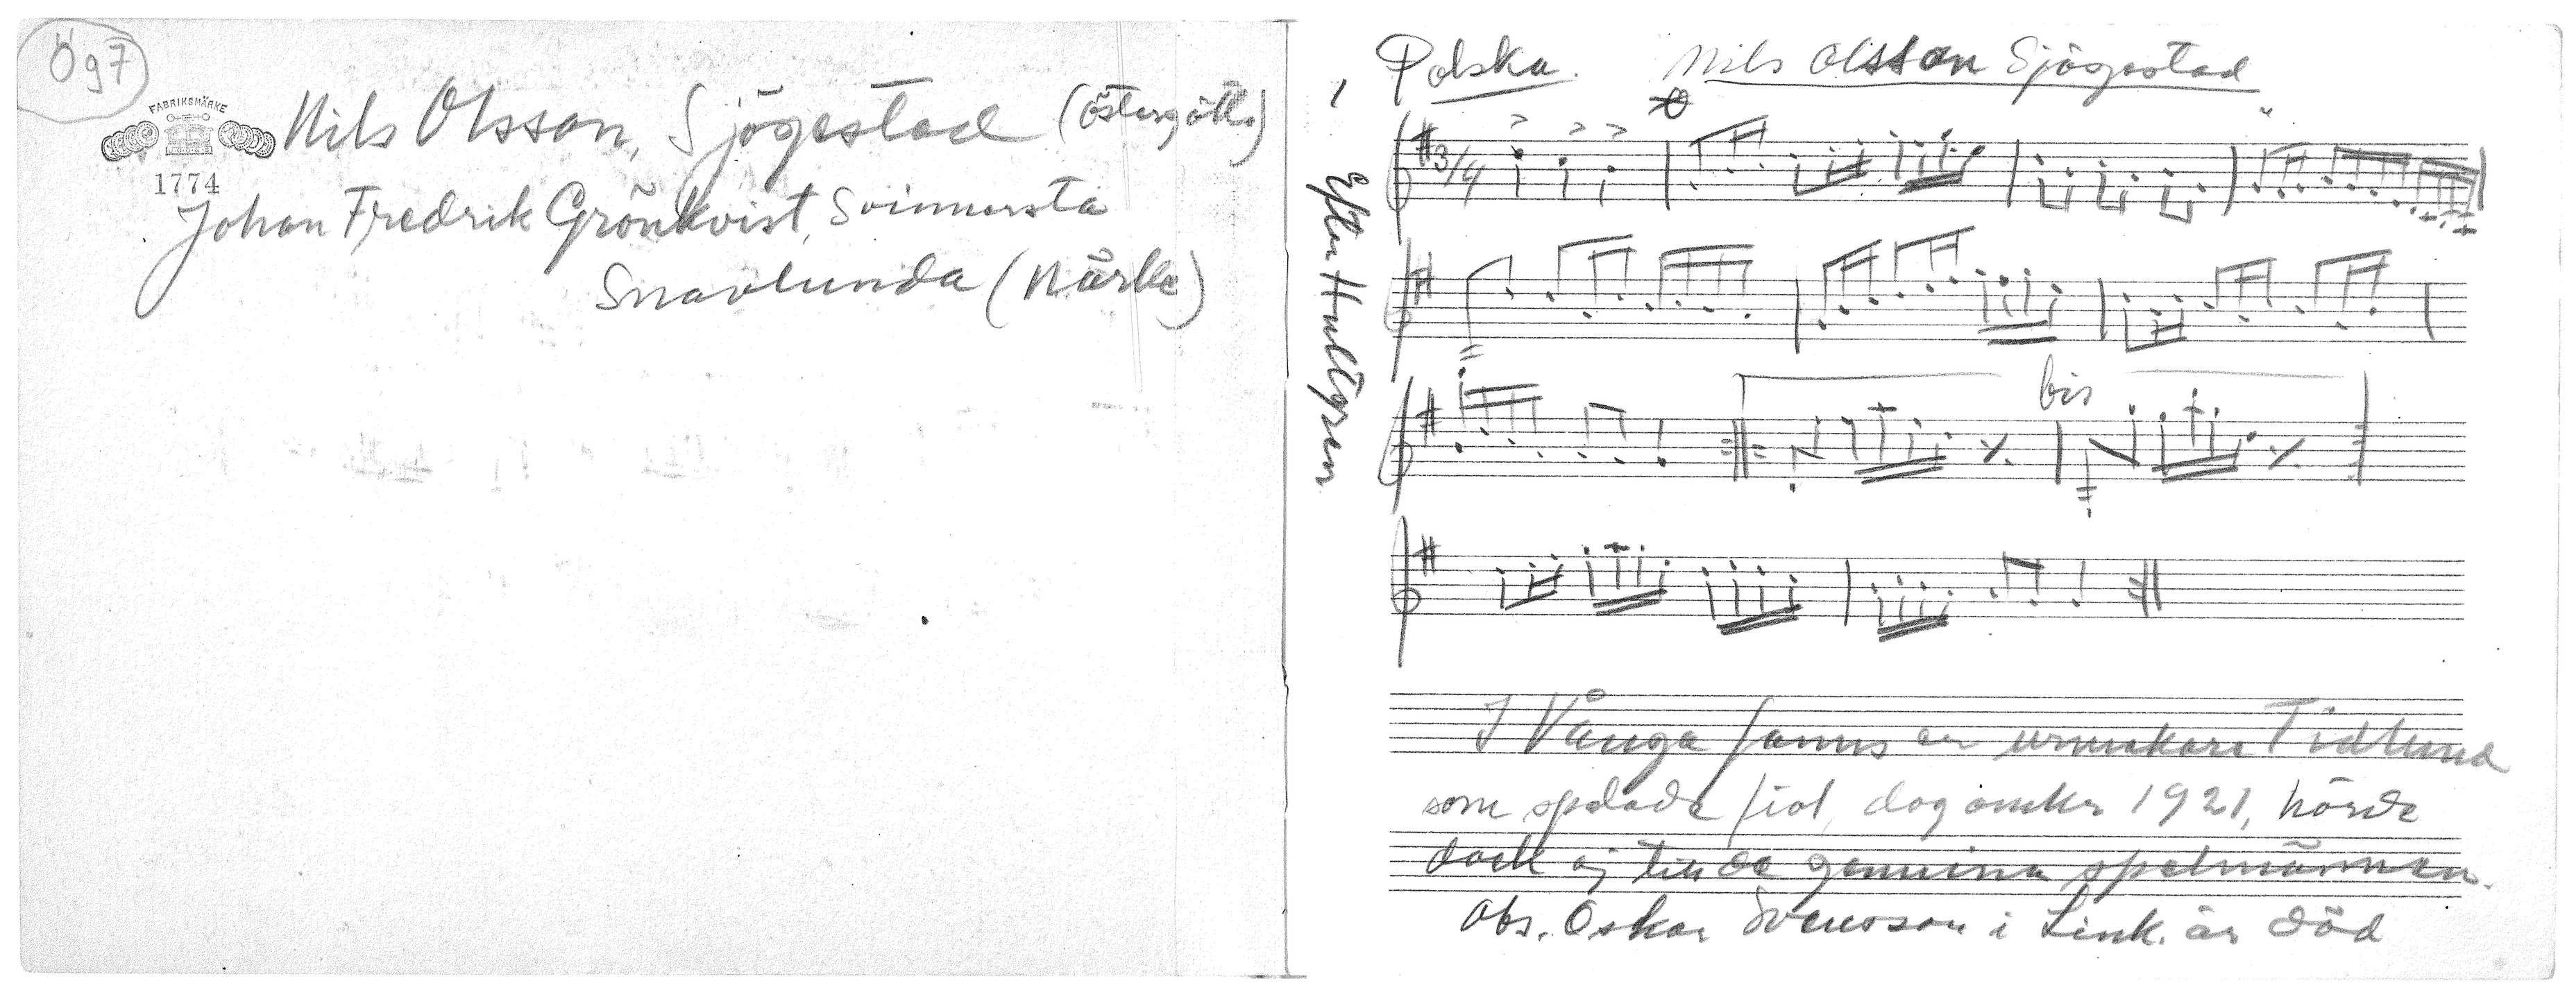 Ög7
FABRIKSMÄRKE
1774
Nils Olsson, Sjögestad (Östergötl.)
Johan Fredrik Grönkvist, Svinnersta
Snavlunda (Närke)
Polska. Nils Olsson Sjögestad
1
Efter Hultgren
3/4
bis
I Vånga fanns en urmakare Tidlund
som spelade fiol, dog omkr 1921, hörde
dock ej till de genuina spelmännen.
Obs. Oskar Svensson i Link. är död